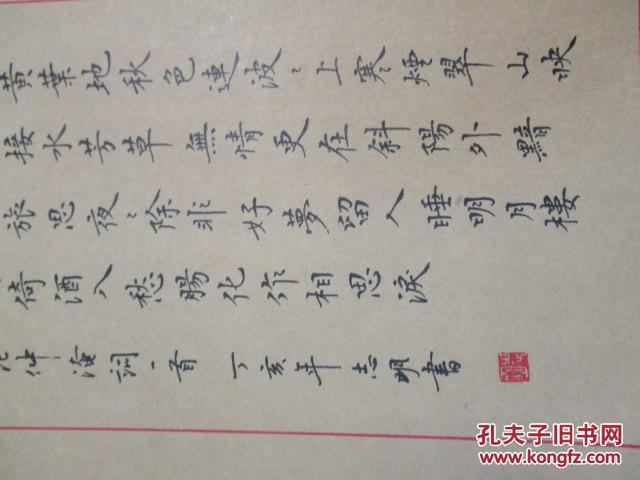 黃葉地秋色連波〻上寒煙翠山映
接水芳草無情更在斜陽外黯
旅思夜〻除非好夢留人睡明月樓
倚酒入愁腸化作相思淚
仲淹詞一首 丁亥年志明書
孔夫子旧书网
www.kongfz.com